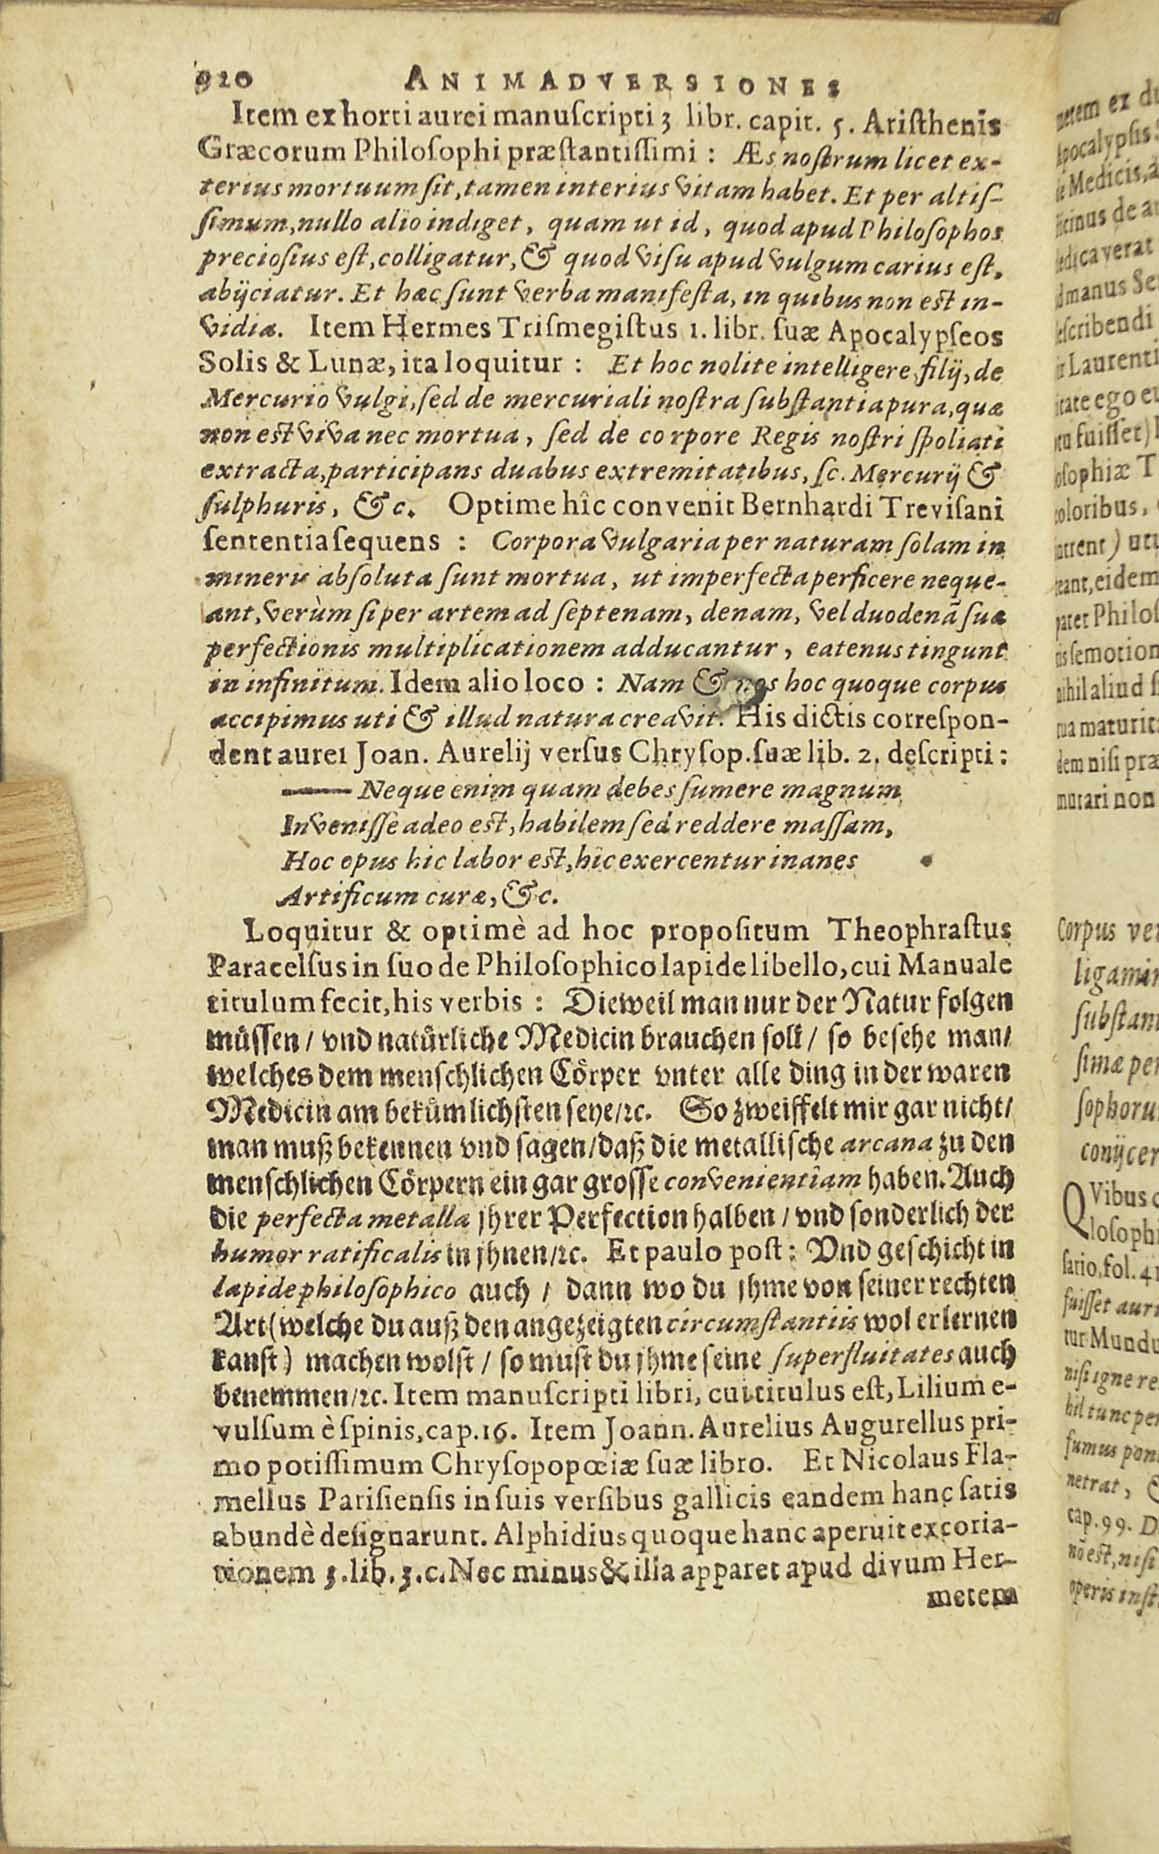 920 ANIMADVERSIONES
Item ex horti aurei manuſcripti 3 libr. capit. 5. Ariſthenis
Græcorum Philoſophi præſtantiſſimi : Æs noſtrum licet ex-
terius mortuum ſit, tamen interius vitam habet. Et per altiſ-
ſimum, nullo alio indiget, quam ut id, quod apud Philoſophos
precioſius eſt, colligatur, & quod viſu apud vulgum carius eſt,
abijciatur. Et hæc ſunt verba manifeſta, in quibus non eſt in-
vidia. Item Hermes Triſmegiſtus 1. libr. ſuæ Apocalypſeos
Solis & Lunæ, ita loquitur : Et hoc nolite intelligere filij, de
Mercurio vulgi, ſed de mercuriali noſtra ſubſtantia pura, quæ
non eſt viva nec mortua, ſed de corpore Regis noſtri ſpoliati
extracta, participans duabus extremitatibus, ſc. Mercurij &
ſulphuris, &c. Optime hîc convenit Bernhardi Treviſani
ſententia ſequens : Corpora vulgaria per naturam ſolam in
minera abſoluta ſunt mortua, ut imperfecta perficere neque-
ant, verùm ſi per artem ad ſeptenam, denam, vel duodenã ſuæ
perfectionis multiplicationem adducantur, eatenus tingunt
in infinitum. Idem alio loco : Nam & nos hoc quoque corpus
accipimus uti & illud natura creavit. His dictis correſpon-
dent aurei Joan. Aurelij verſus Chryſop. ſuæ lib. 2. deſcripti :
—— Neque enim quam debes ſumere magnum
Inveniſſe adeo eſt, habilem ſed reddere maſſam,
Hoc opus hic labor eſt, hîc exercentur inanes
Artificum curæ, &c.
Loquitur & optimè ad hoc propoſitum Theophraſtus
Paracelſus in ſuo de Philoſophico lapide libello, cui Manuale
titulum fecit, his verbis : Dieweil man nur der Natur folgen
müſſen / vnd natürliche Medicin brauchen ſoll / ſo beſehe man /
welches dem menſchlichen Cörper vnter alle ding in der waren
Medicin am bekümlichſten ſeye / ꝛc. So zweiffelt mir gar nicht /
man muß bekennen vnd ſagen / daß die metalliſche arcana zu den
menſchlichen Cörpern ein gar groſſe convenientiam haben. Auch
die perfecta metalla jhrer Perfection halben / vnd ſonderlich der
humor ratificalis in jhnen / ꝛc. Et paulo poſt : Vnd geſchicht in
lapide philoſophico auch / dann wo du jhme von ſeiner rechten
Art (welche du auß den angezeigten circumſtantiis wol erlernen
kanſt) machen wolſt / ſo muſt du jhme ſeine ſuperfluitates auch
benemmen / ꝛc. Item manuſcripti libri, cui titulus eſt, Lilium e-
vulſum è ſpinis, cap. 16. Item Joann. Aurelius Augurellus pri-
mo potiſſimum Chryſopopœiæ ſuæ libro. Et Nicolaus Fla-
mellus Pariſienſis in ſuis verſibus gallicis eandem hanc ſatis
abundè deſignarunt. Alphidius quoque hanc aperuit excoria-
tionem 3. lib. 3. c. Nec minus & illa apparet apud divum Her-
metem
metem ex
Apocalypſis
Medicis,
de
verat
manus
ſcribendi
Laurenti
ego
fuiſſet)
oſophiæ T
coloribus,
utrent) uti
eant, eidem
patet Philoſ
ſemotion
nihil aliud ſ
tua maturit
dem niſi præ
mutari non
Corpus ver
ligamin
ſubſtan
ſimæ per
ſophoru
conijcer
QVibus
loſophi
ſario, fol. 41
fuiſſet auri
tur Mundu
niſi igne re
hil tunc per
fumus pon
netrat, &
cap. 99. D
nõ eſt, niſi
operis inſt